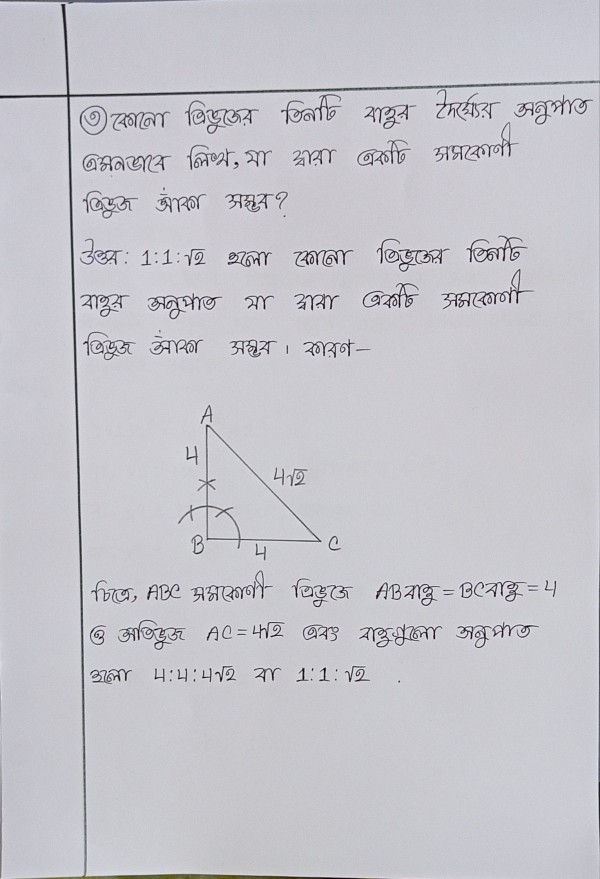 ৩ কোনো ত্রিভুজের তিনটি বাহুর দৈর্ঘ্যের অনুপাত
এমনভাবে লিখ, যা দ্বারা একটি সমকোণী
ত্রিভুজ আঁকা সম্ভব?
উত্তর: 1:1:√2 হলো কোনো ত্রিভুজের তিনটি
বাহুর অনুপাত যা দ্বারা একটি সমকোণী
ত্রিভুজ আঁকা সম্ভব। কারণ—
A
4
4√2
B
4
C
চিত্রে, ABC সমকোণী ত্রিভুজে AB বাহু = BC বাহু = 4
ও অতিভুজ AC = 4√2 এবং বাহুগুলো অনুপাত
হলো 4:4:4√2 বা 1:1:√2 .